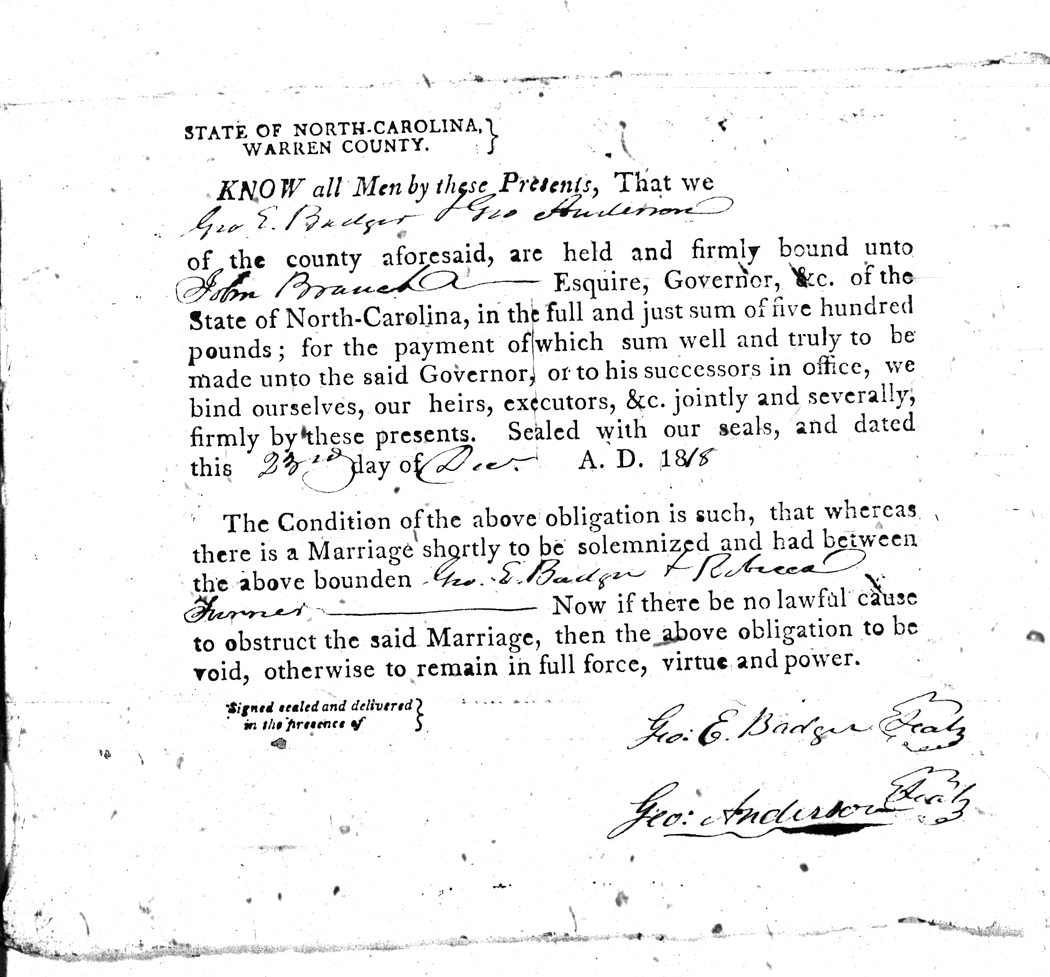 STATE OF NORTH-CAROLINA,}
WARREN COUNTY.
KNOW all Men by these Presents, That we
Geo E. Badger & Geo Anderson
of the county aforesaid, are held and firmly bound unto
John Branch Esquire, Governor, &c. of the
State of North-Carolina, in the full and just sum of five hundred
pounds; for the payment of which sum well and truly to be
made unto the said Governor, or to his successors in office, we
bind ourselves, our heirs, executors, &c. jointly and severally,
firmly by these presents. Sealed with our seals, and dated
this 23rd day of Dec. A. D. 1818
The Condition of the above obligation is such, that whereas
there is a Marriage shortly to be solemnized and had between
the above bounden Geo. E. Badger & Rebecca
Turner Now if there be no lawful cause
to obstruct the said Marriage, then the above obligation to be
void, otherwise to remain in full force, virtue and power.
Signed sealed and delivered}
in the presence of
Geo: E. Badger Seal
Geo: Anderson Seal